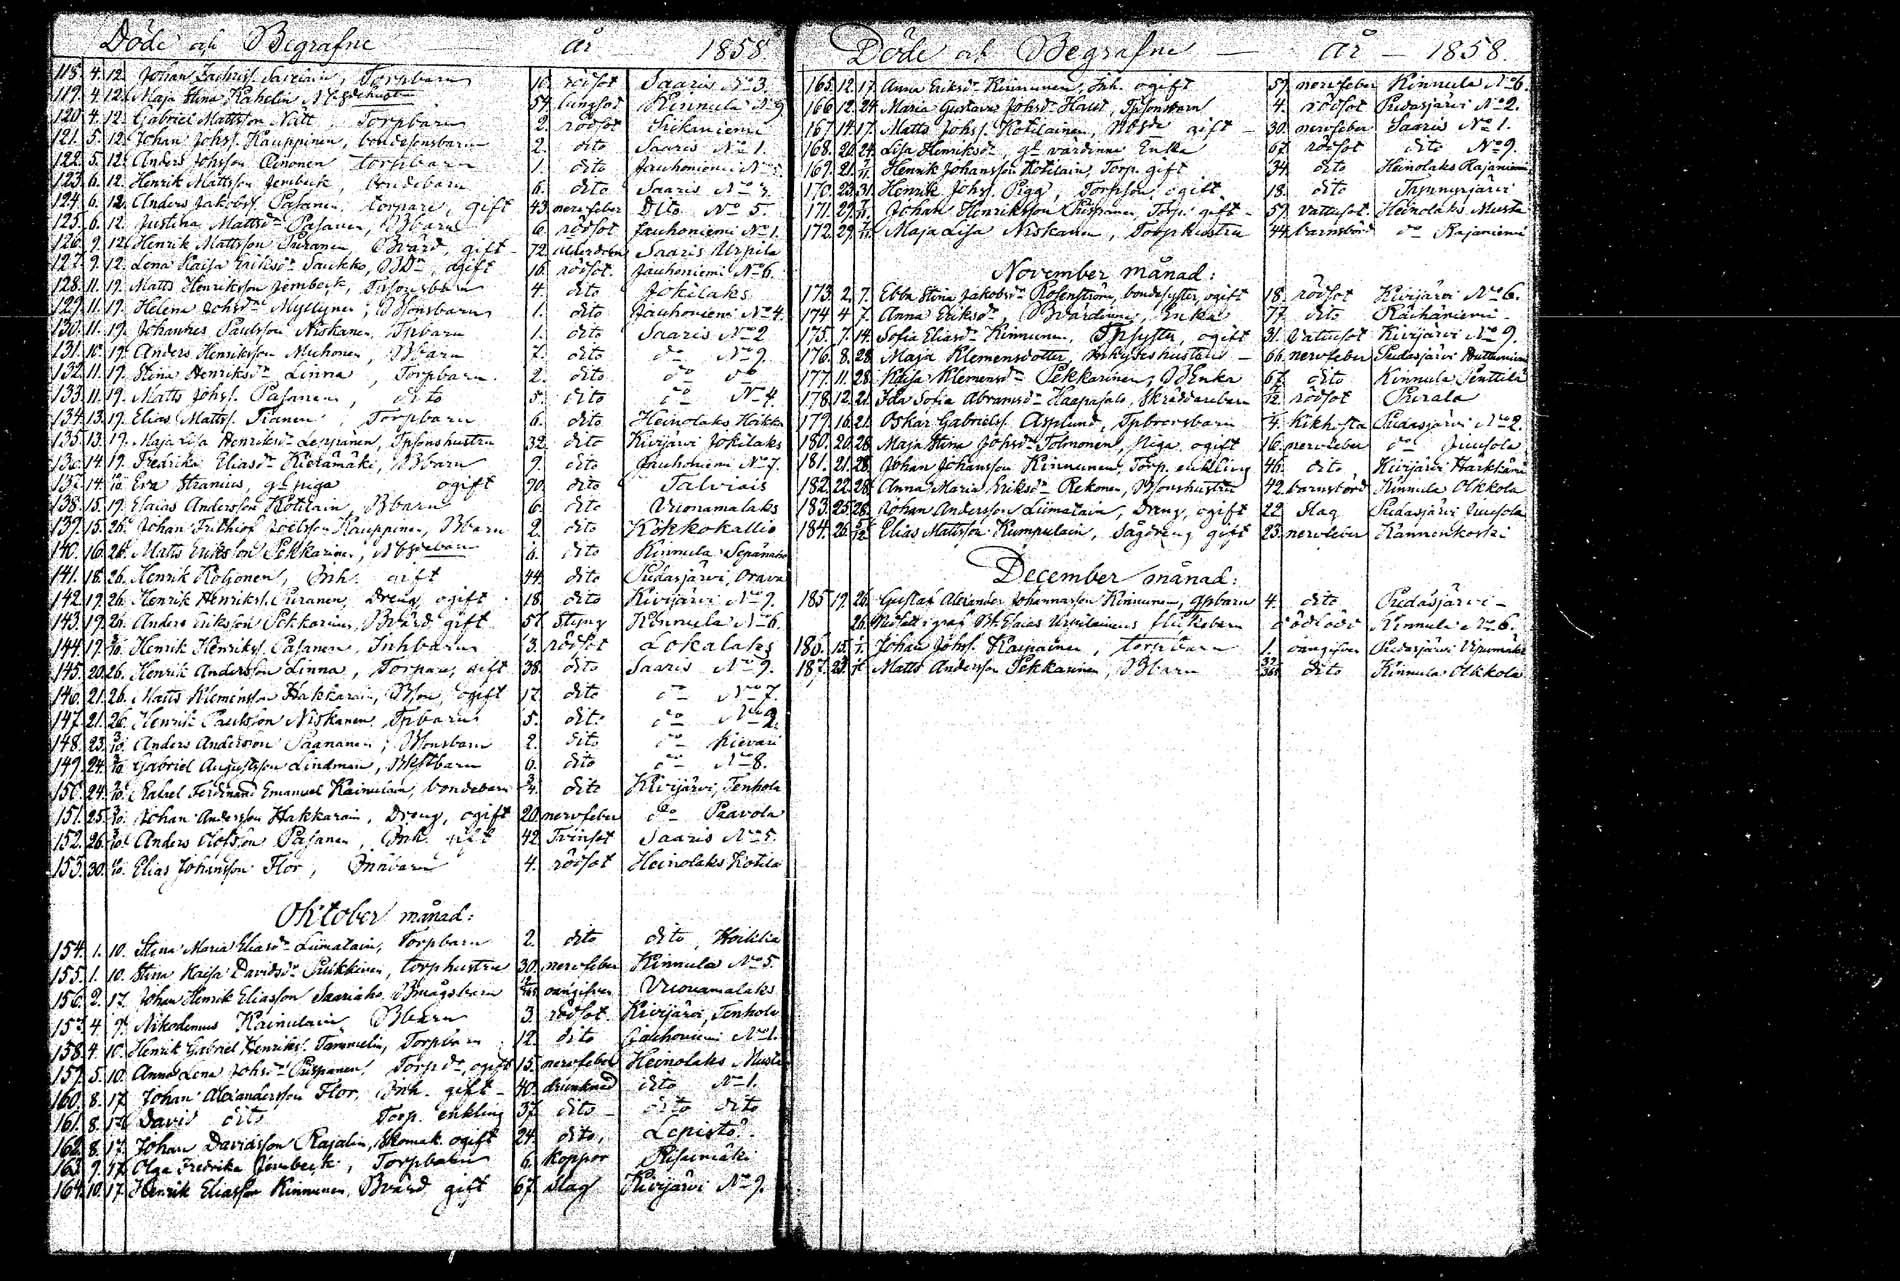 Döde och Begrafne år 1858.
118. 4. 12. Johan Zachriss. Torpbarn 10. rödsot Saaris No 3.
119. 4. 12. Maja Stina Kahelin 54. lungsot Kinnula No 9
120. 4. 12. Gabriel Mattsson Torpbarn 2. rödsot Siikaniemi
121. 5. 12. Johan Johss. Kauppinen, bondesonsbarn 2. dito Saaris No 1.
122. 5. 12. Anders Johsson Oinonen torpbarn 1. dito Jauhoniemi No
123. 6. 12. Henrik Mattsson Jernbeck, bondebarn 6. dito Saaris No
124. 6. 12. Anders Jakobss. Pasanen, torpare, gift 43. nervfeber Dito No 5.
125. 6. 12. Justina Mattsdr Pasanen, Bbarn 6. rödsot Jauhoniemi No 1.
126. 9. 12. Henrik Mattsson Puranen, Bvärd, gift 72. ålderdom Saaris Urpila
127. 9. 12. Lena Kaisa Eriksdr Saukko, BDr, ogift 16. rödsot. Jauhoniemi No 6.
128. 11. 19. Matts Henriksson Jernbeck, Tpsonsbarn 4. dito Jokilaks
129. 11. 19. Helena Johsdr Myllynen, Bsonsbarn 1. dito Jauhoniemi No 4.
130. 11. 19. Johannes Paulsson Niskanen, Tpbarn 1. dito Saaris No 2
131. 19. Anders Henriksson Muhonen, Bbarn 7. dito do No 9.
132. 11. 19. Stina Henriksdr Linna, Torpbarn. 2. dito do do
133. 11. 19. Matts Johss. Pasanen, dito 5. dito do No 4
134. 13. 19. Elias Mattss. Pianen, Torpbarn 6. dito Heinolaks Hoikka
135. 13. 19. Maja Lisa Henriksdr Leppänen, Tpsonshustru 32. dito Kivijärvi Jokilaks
136. 14. 19. Fredrika Eliasdr Kietämäki, Bbarn 9. dito Jauhoniemi No 7.
137. 14. Eva Stranius, gl piga ogift 70. dito Talviais
138. 15. 19. Esaias Andersson Kotilain, Bbarn 6. dito Vuonamalaks
139. 15. 26. Johan Frithiof Joelsson Kauppinen, Bbarn 2. dito Kokkokallio
140. 16. 26. Matts Eriksson Pekkarinen, 6. dito Kinnula Sepänaho
141. 18. 26. Henrik Koljonen, Inh. gift 44. dito Pudasjärvi, Orava
142. 19. 26. Henrik Henrikss. Puranen, Dreng ogift 18. dito Kivijärvi No 9.
143. 19. 26. Anders Eriksson Pekkarinen, Bvärd gift 57. Styng Kinnula No 6.
144. 19. Henrik Henrikss. Pasanen, Inhbarn 3. rödsot Lokalaks
145. 20. 26. Henrik Andersson Linna, Torpare, gift 38. dito Saaris No 9.
146. 21. 26. Matts Klemensson Hakkarain, Bson, ogift 17. dito do No 7.
147. 21. 26. Henrik Paulsson Niskanen, Tpbarn 5. dito do No 2.
148. 23. 3/10. Anders Andersson Paananen, Bsonsbarn 2. dito do Kievari
149. 24. 3/10 Gabriel Augustsson Lindman, 6. dito do No 8.
150. 24. 3/10. Rafael Ferdinand Emanuel Kainulain, bondebarn 3/4. dito Kivijärvi, Tenhola
151. 25. 3/10. Johan Andersson Hakkarain, Dreng, ogift 20. nervfeber do Paavola
152. 26. 3/10. Anders Olofsson Pasanen, Inh. gift 42. Tvinsot Saaris No 5.
153. 30. Elias Johansson Flor, Inhbarn 4. rödsot Heinolaks Kotila
Oktober månad:
154. 1. 10. Stina Maria Eliasdr Liimatain, Torpbarn 2. dito dito, Hoikka
155. 1. 10. Stina Kaisa Davidsdr Puikkinen, torphustru 30. nervfeber Kinnula No 5.
156. 2. 17. Johan Henrik Eliasson Saariaho, Bmågsbarn oangifven Vuonamalaks
157. 4. Nikodemus Kainulain, Bbarn 3. rödsot. Kivijärvi, Tenhola
158. 4. 10. Henrik Gabriel Henrikss. Tammelin, Torpbarn 12. dito Jauhoniemi No 1.
159. 5. 10. Anna Lena Johsdr Puspanen, Torpdr, ogift 15. nervfeber Heinolaks Musta
160. 8. 17. Johan Alexandersson Flor, Inh. gift 40. drunknad dito No 1.
161. 8. 17. David dito Torp. enkling 37. dito dito dito
162. 8. 17. Johan Davidsson Rajalin, Skomak. ogift 24. dito, Lepistö.
163. 9. 17. Olga Fredrika Jernbeck, Torpbarn 6. koppor Risainmäki
164. 10. 17. Henrik Eliasson Kinnunen, Bvärd, gift 67. Slag Kivijärvi No 9.
Döde och Begrafne år 1858.
165. 12. 17. Anna Eriksdr Kinnunen, Inh. ogift 59. nervfeber Kinnula No 6.
166. 12. 24. Maria Gustava Johsdr Hautt, Tpsonsbarn 4. rödsot Pudasjärvi No 2.
167. 14. 17. Matts Johss. Kotilainen, gift 30. nervfeber Saaris No 1.
168. 20. 24. Lisa Henriksdr, gl värdinna Enka 67. rödsot dito No 9.
169. 21. Henrik Johansson Kotilain, Torp. gift 34. dito Heinolaks Rajaniemi
170. 23. 31. Henrik Johss. Pigg, Torpson, ogift 18. dito Tammijärvi
171. 29. Johan Henriksson Puspanen, Torp. gift 59. Vattusot. Heinolaks Musta
172. 29. Maja Lisa Niskanen, Torphustru 44. barnsbörd do Rajaniemi
November månad:
173. 2. 7. Ebba Stina Jakobsdr Rosenström, bondesyster, ogift 18. rödsot Kivijärvi No 6.
174. 4. 7. Anna Eriksdr, Bvärdinna, Enka 77. dito Räihäniemi
175. 7. 14. Sofia Eliasdr Kinnunen, Tpsyster, ogift 31. Vattusot Kivijärvi No 9.
176. 8. 28. Maja Klemensdotter, 66. nervfeber Pudasjärvi Huttuniemi
177. 11. 28. Kaisa Klemensdr Pekkarinen, BEnka 67. dito Kinnula Penttilä
178. 12. 21. Ida Sofia Abramsdr Haapasalo, Skräddarebarn rödsot Purala
179. 16. 21. Oskar Gabrielss. Asplund, Tpbrorsbarn kikhosta Pudasjärvi No 2.
180. 20. 28. Maja Stina Johsdr Tolonen, Piga, ogift 16. nervfeber do Juusola
181. 21. 28. Johan Johansson Kinnunen, Torp. enkling 46. dito Kivijärvi Harkkänä
182. 22. 28. Anna Maria Eriksdr Rekonen, Bsonshustru 42. barnsbörd Kinnula Olkkola
183. 25. 28. Johan Andersson Liimatain, Dreng, ogift 22. Slag Pudasjärvi Juusola
184. 26. 5/12. Elias Mattsson Kumpulain, Sågdreng gift 23. nervfeber Kannonkoski
December månad:
185. 19. 26. Gustaf Alexander Johannesson Kinnunen, Tpbarn 4. dito Pudasjärvi
26. flickebarn dödfödd Kinnula No 6.
186. 15. Johan Johss. Kaipainen, torpbarn 1. oangifven Pudasjärvi
187. 23. Matts Andersson Pekkarinen, Bbarn dito Kinnula Olkkola